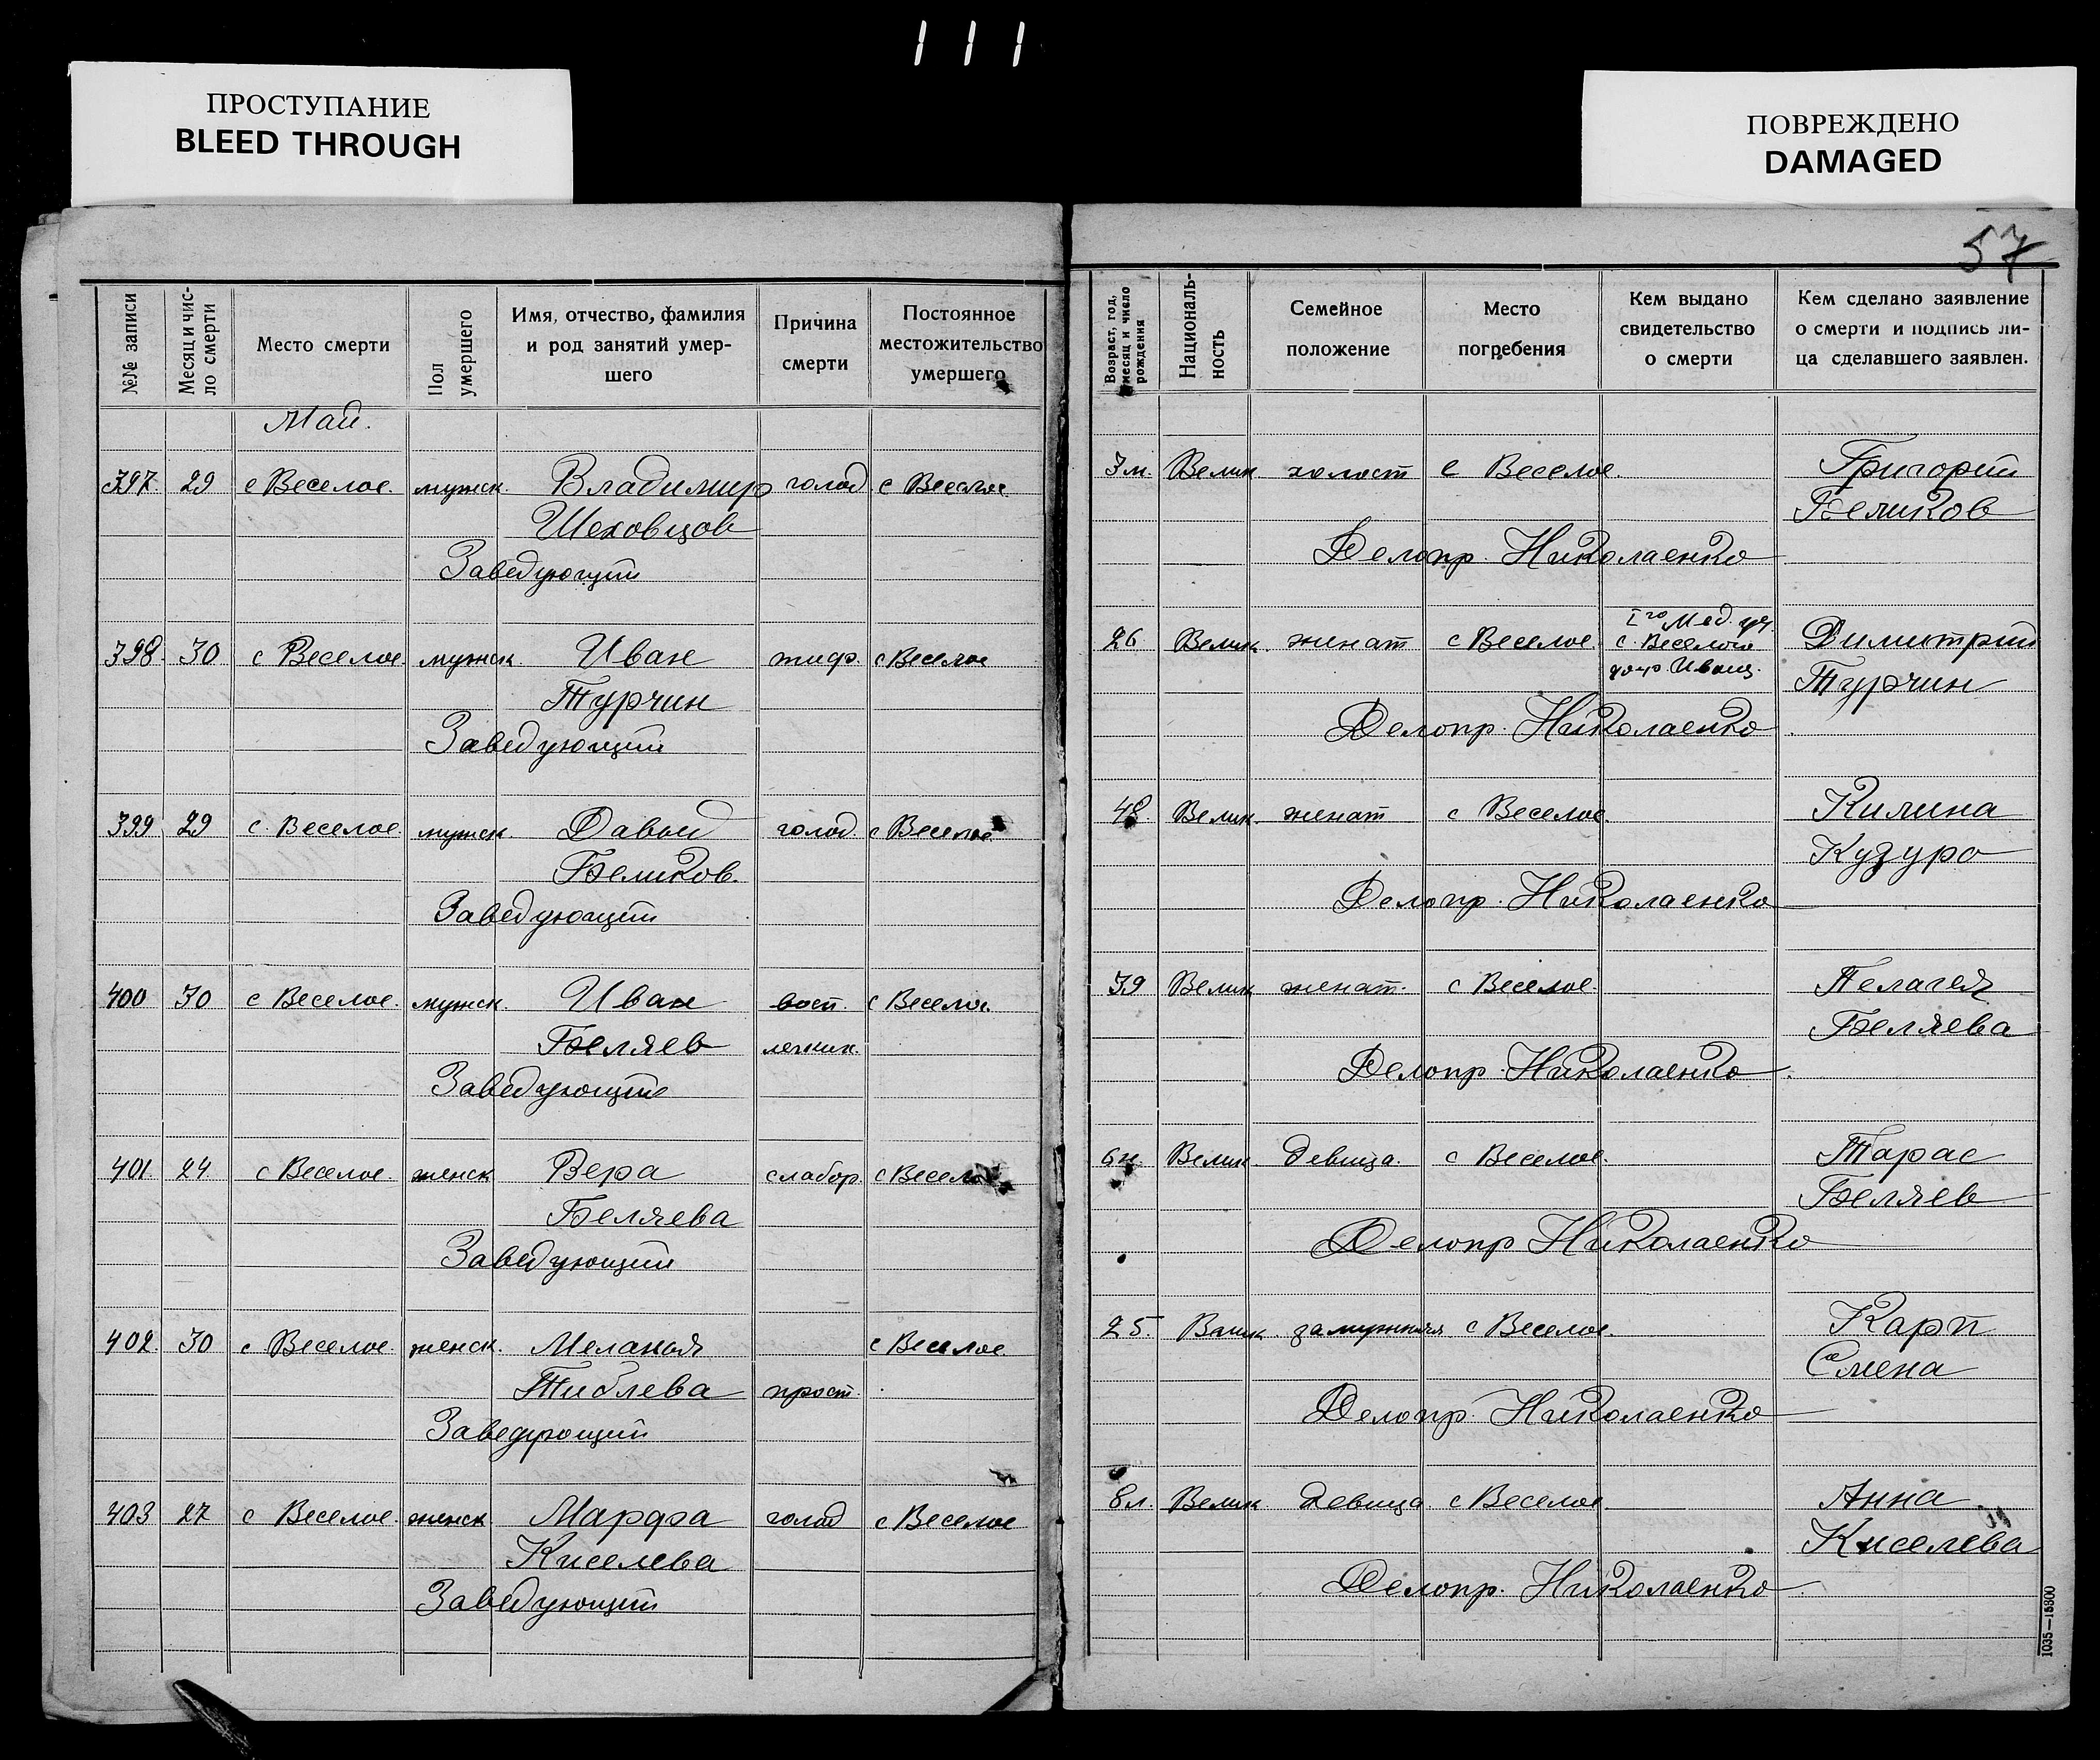 111
ПРОСТУПАНИЕ
BLEED THROUGH
ПОВРЕЖДЕНО
DAMAGED
57
№№ записи
Месяц и чис-
ло смерти
Место смерти
Пол
умершего
Имя, отчество, фамилия
и род занятий умер-
шего
Причина
смерти
Постоянное
местожительство
умершего
Возраст, год,
месяц и число
рождения
Националь-
ность
Семейное
положение
Место
погребения
Кем выдано
свидетельство
о смерти
Кем сделано заявление
о смерти и подпись ли-
ца сделавшего заявлен.
Май.
397. 29 с Веселое. мужск. Владимир голод с Веселое. 3 м. Велик. холост с Веселое. Григорий
Шеховцов Беликов
Заведующий Делопр. Николаенко
398. 30 с Веселое. мужск. Иван тиф. с Веселое 26 Велик. женат с Веселое. Iго Мед. уч. Димитрий
с. Веселого
Турчин Турчин
Заведующий Делопр. Николаенко
399 29 с. Веселое. мужск Давыд голод. с Веселое. 48. Велик. женат с Веселое Килина
Беликов. Кузуро
Заведующий Делопр. Николаенко
400 30 с Веселое. мужск. Иван восп. с Веселое. 39 Велик женат. с Веселое. Пелагея
Беляев легких. Беляева
Заведующий Делопр. Николаенко
401 24. с Веселое. женск Вера слабор. с Веселое Велик. девица. с Веселое. Тарас
Беляева Беляев
Заведующий Делопр Николаенко
402. 30 с Веселое. женск. Меланья с Веселое. 25. Велик. замужняя с Веселое. Карп
прост.
Заведующий Делопр. Николаенко
403 27 с Веселое. женск Марфа голод с Веселое 8 л. Велик девица. с Веселое Анна
Киселева Киселева
Заведующий Делопр. Николаенко
1035—15800